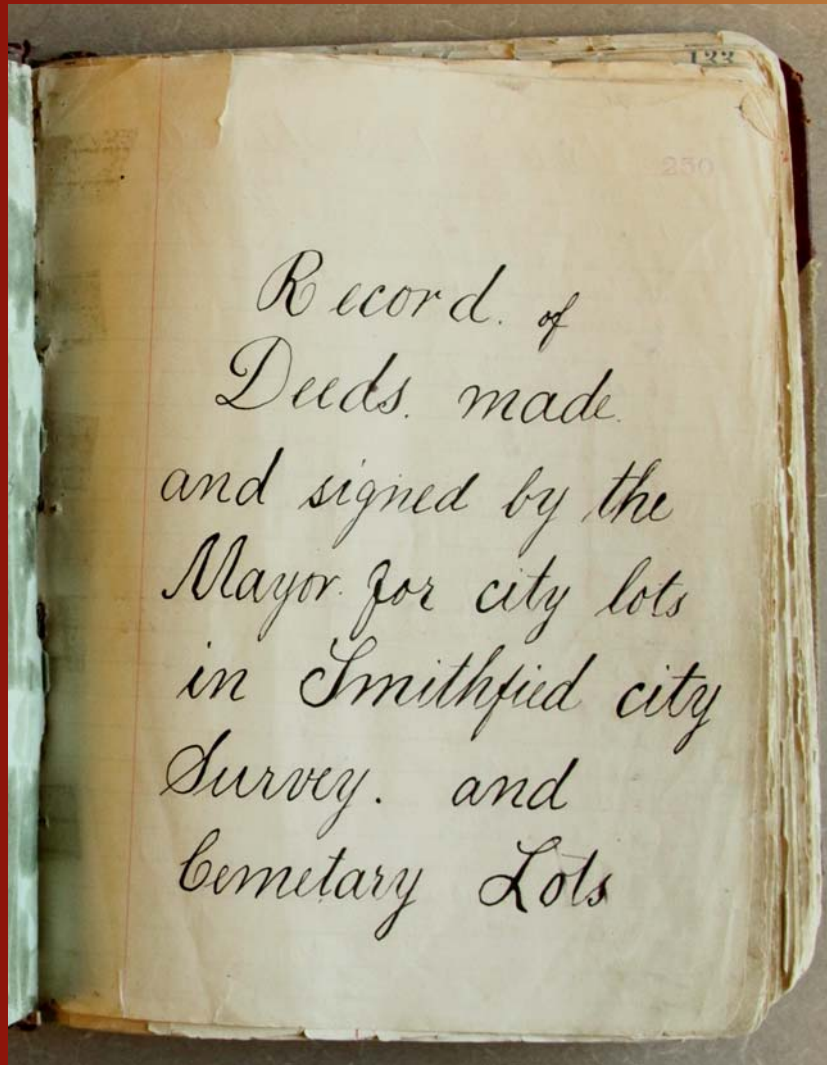 133
250
Record. of
Deeds. made.
and signed by the
Mayor. for city lots
in Smithfied city
Survey. and
Cemetary Lots